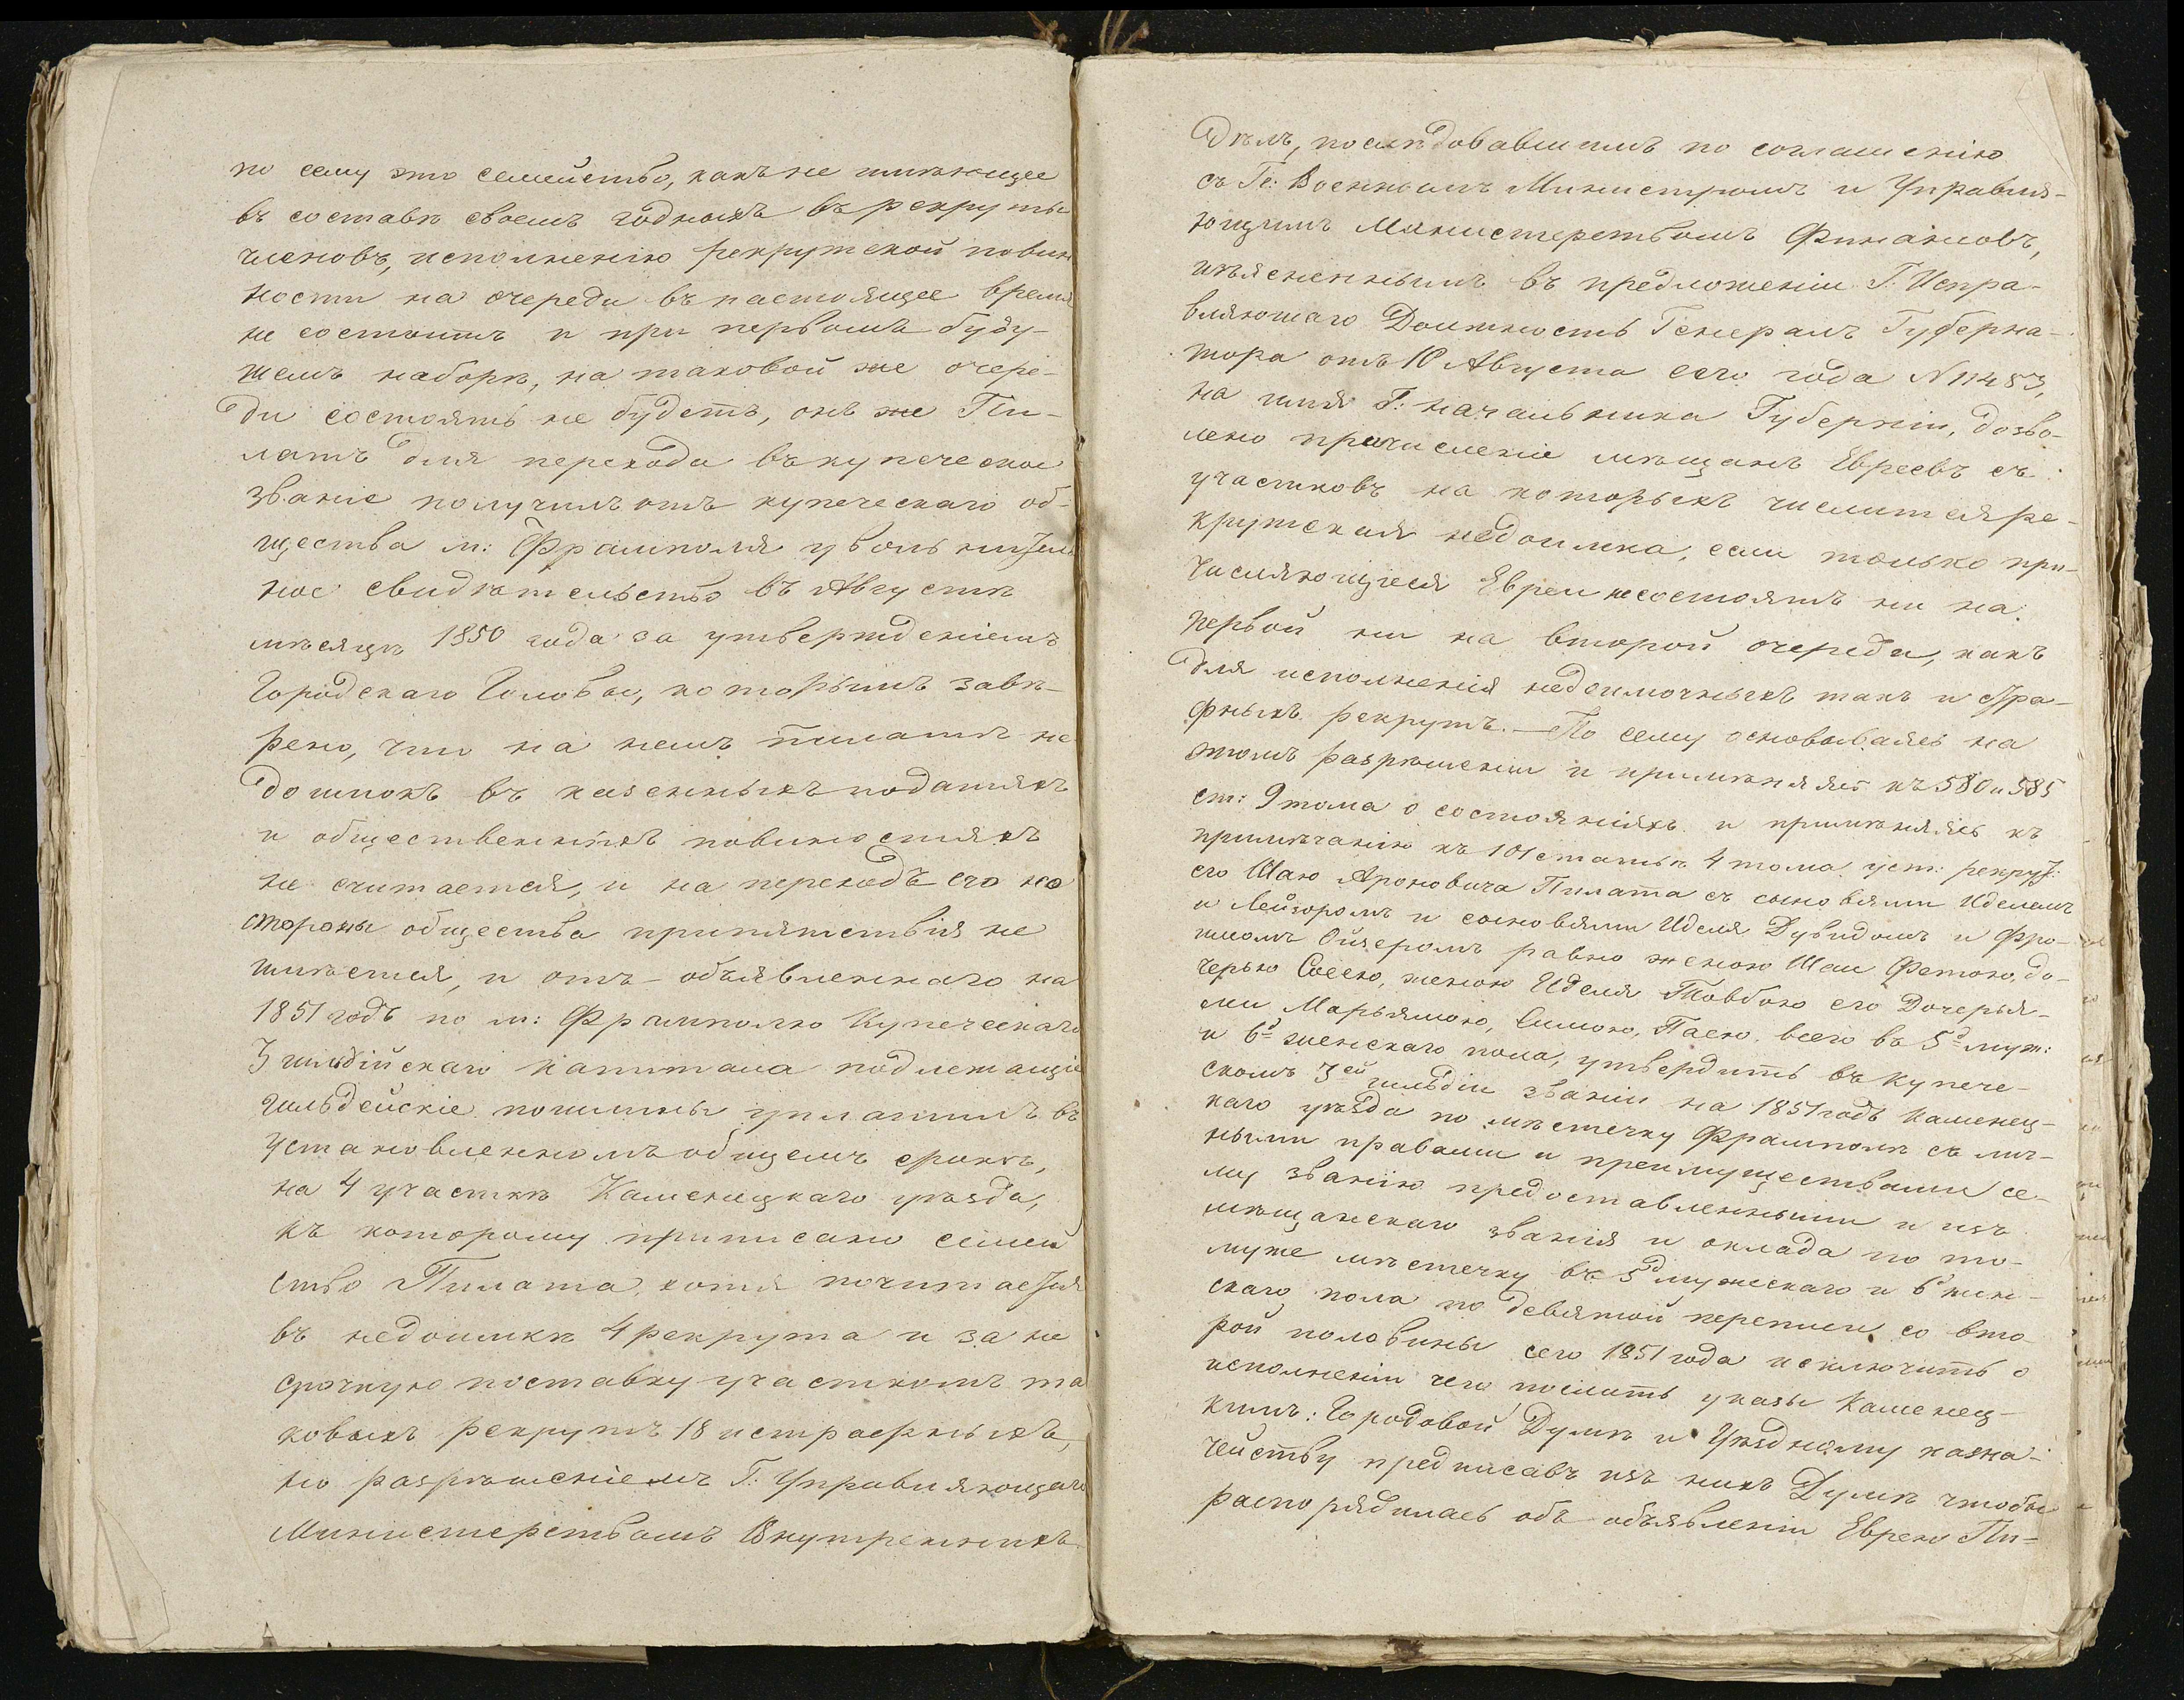 по сему это семейство, какъ не имѣющее
въ составѣ своемъ годныхъ въ рекруты
членовъ, исполненію рекрутской повин
ности на очереди въ настоящее время
не состоитъ и при первомъ буду-
щемъ наборѣ, на таковой же очере-
ди состоять не будетъ, онъ же Пи-
латъ для перехода въ купеческое
званіе получилъ отъ купеческаго об-
щества м: Фрамполя увольнитель
ное свидѣтельство въ Августѣ
мѣсяцѣ 1850 года за утвержденіемъ
Городскаго Головы, которымъ завѣ-
рено, что на немъ Пилатѣ не
доимокъ въ казенныхъ податяхъ
и общественныхъ повиностяхъ
не считается, и на переходъ его со
стороны общества припятствія не
имѣется, и отъ объявленнаго на
1851 годъ по м: Фрамполю Купеческаго
3 гильдійскаго капитала подлежащіе
гильдейскіе пошлины уплатилъ въ
установленномъ общемъ срокѣ,
на 4 участкѣ Каменецкаго уѣзда,
къ которому приписано семей
ство Пилата, хотя почитается
въ недоимкѣ 4 рекрута и за не
срочную поставку участкомъ та
ковыхъ рекрутъ 18 истрафныхъ,
но разрѣшеніемъ Г: Управляющаго
Министерствомъ Внутреннихъ
Дѣлъ, послѣдовавшимъ по соглашенію
съ Гг: Военнымъ Министромъ и Управля-
ющимъ Министерствомъ Финансовъ,
изъясненнымъ въ предложеніи Г: Испра-
вляющаго Должность Генералъ Губерна-
тора отъ 10 Августа сего года N 11483,
на имя Г: Начальника Губерніи, дозво-
лено причисленіе мѣщанъ Евреевъ съ
участковъ на которыхъ числится ре-
крутская недоимка, если только при-
числяющіеся Евреи не состоятъ ни на
первой ни на второй очереди, какъ
для исполненія недоимочныхъ такъ и стра-
фныхъ рекрутъ. — По сему основываясь на
этомъ разрѣшеніи и примѣняясь къ 580 и 585
ст: 9 тома о состояніяхъ и примѣняясь къ
примѣчанію къ 101 статьѣ 4 тома уст: рекрут:
его Шаю Ароновича Пилата съ сыновьями Иделемъ
и Лейзоромъ и сыновьями Иделя Дувидомъ и Фро-
имомъ Ойзеромъ равно женою Шаи Фетою, до-
черью Сосею, женою Иделя Товбою его Дочерья-
ми Марьямою, Симою, Пасею всего въ 5д муж:
и 6д женскаго пола, утвердить въ купече-
скомъ 3ей гильдіи званіи на 1851 годъ Каменец-
каго уѣзда по мѣстечку Фрамполѣ съ лич-
ными правами и преимуществами се-
му званію предоставленными и изъ
мѣщанскаго званія и оклада по то-
муже мѣстечку въ 5д мужескаго и 6 жен-
скаго пола по девятой переписи со вто-
рой половины сего 1851 года исключить о
исполненіи чего послать указы Каменец-
кимъ: Городовой Думѣ и Уѣздному казна-
чейству предписавъ изъ нихъ Думѣ чтобы
распорядилась объ объявленіи Еврею Пи=